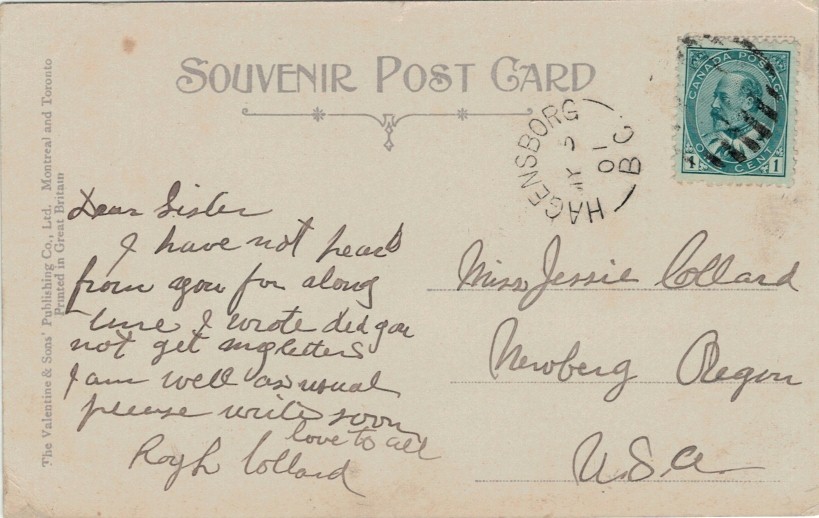 SOUVENIR POST CARD
CANADA POSTAGE
ONE CENT
1 1
HAGENSBORG
10
B C
The Valentine & Sons' Publishing Co., Ltd. Montreal and Toronto
Printed in Great Britain
Dear Sister
I have not heard
from you for along
time I wrote did you
not get my letters
I am well as usual
please write soon
love to all
Collard
Miss Jessie Collard
Newberg Oregon
U.S.A.